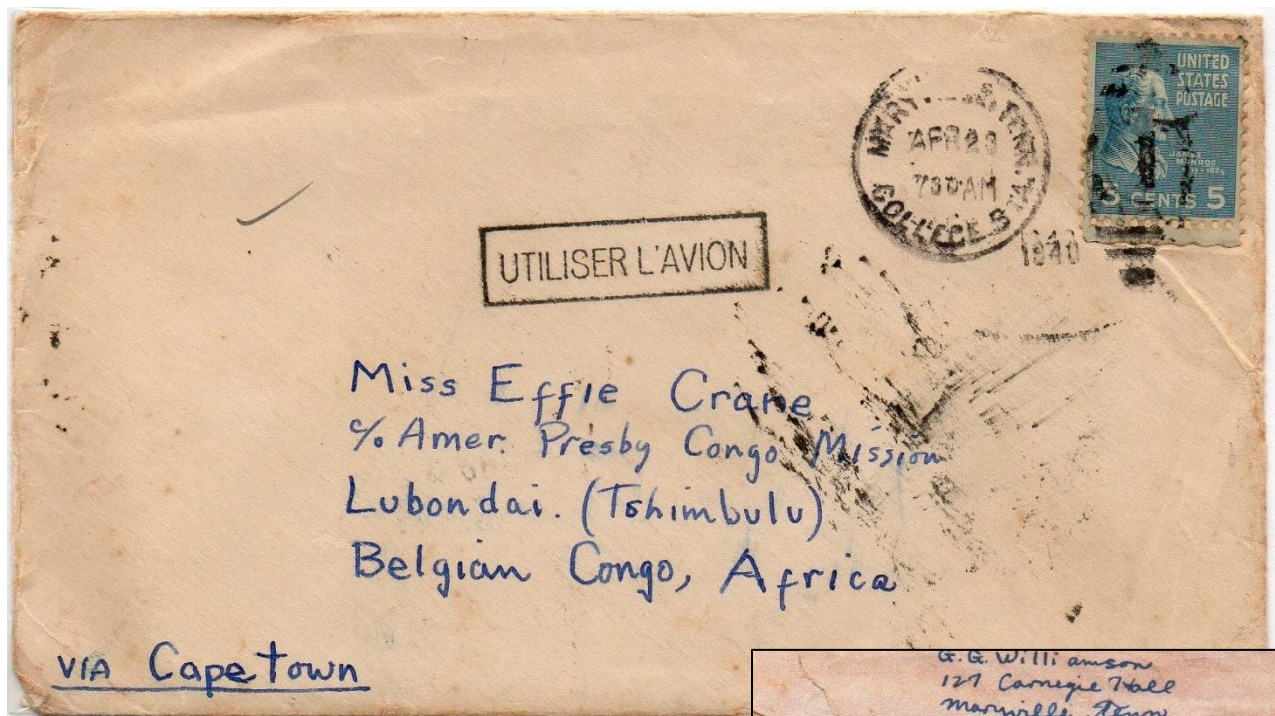 UNITED
STATES
POSTAGE
JAMES
MONROE
5 CENTS 5
TENN.
APR 29
AM
COLLEGE STA.
1940
UTILISER L'AVION
Miss Effie Crane
% Amer. Presby Congo Mission
Lubondai. (Tshimbulu)
Belgian Congo, Africa
VIA Cape town
G. G. Williamson
127 Carnegie Hall
Maryville, Tenn